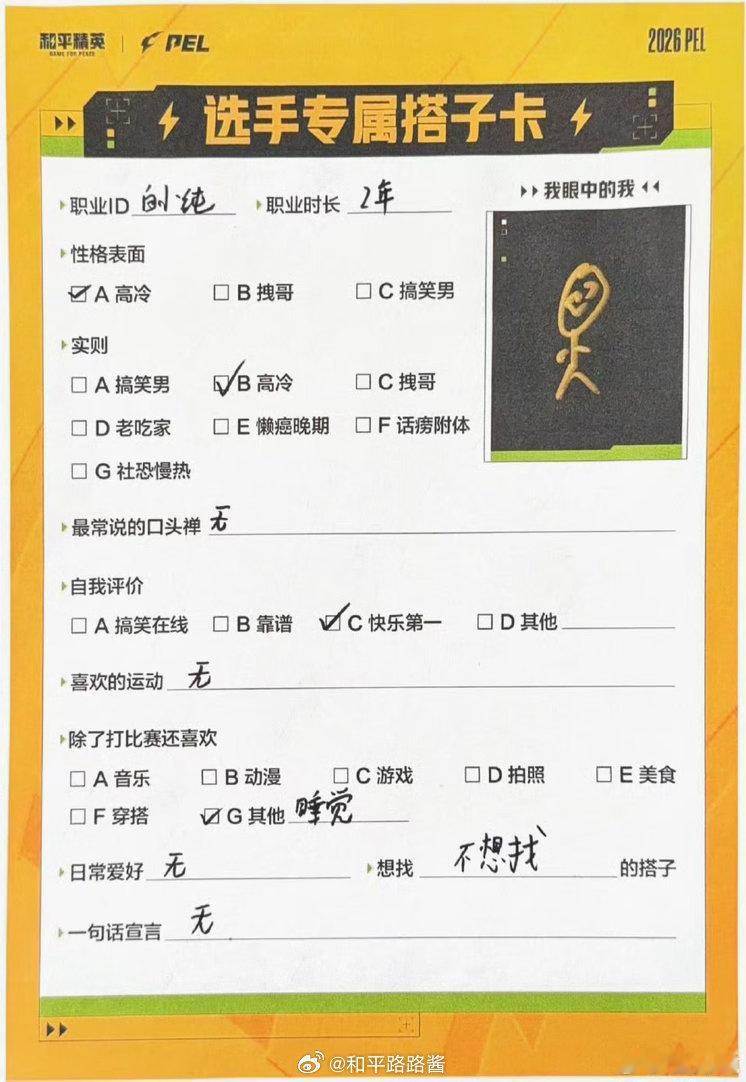 和平精英
GAME FOR PEACE
PEL
2026 PEL
选手专属搭子卡
职业ID 纯 职业时长 2年
我眼中的我
性格表面
☑ A 高冷 □ B 拽哥 □ C 搞笑男
实则
□ A 搞笑男 ☑ B 高冷 □ C 拽哥
□ D 老吃家 □ E 懒癌晚期 □ F 话痨附体
□ G 社恐慢热
最常说的口头禅 无
自我评价
□ A 搞笑在线 □ B 靠谱 ☑ C 快乐第一 □ D 其他
喜欢的运动 无
除了打比赛还喜欢
□ A 音乐 □ B 动漫 □ C 游戏 □ D 拍照 □ E 美食
□ F 穿搭 ☑ G 其他 睡觉
日常爱好 无 想找 不想找 的搭子
一句话宣言 无
@和平路路酱